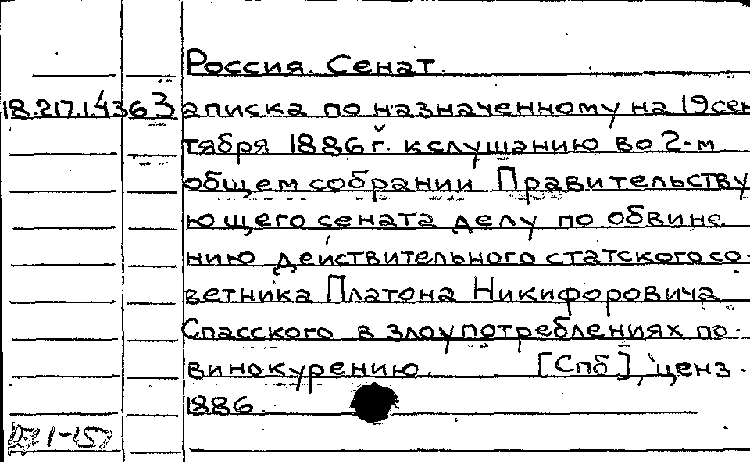 Россия. Сенат.
18.217.1.436 Записка по назначенному на 19 сен
тября 1886 г. к слушанию во 2-м
общем собрании Правительству
ющего сената делу по обвине
нию действительного статского со-
ветника Платона Никифоровича
Спасского в злоупотреблениях по
винокурению. [Спб], ценз.
1886.
1-157